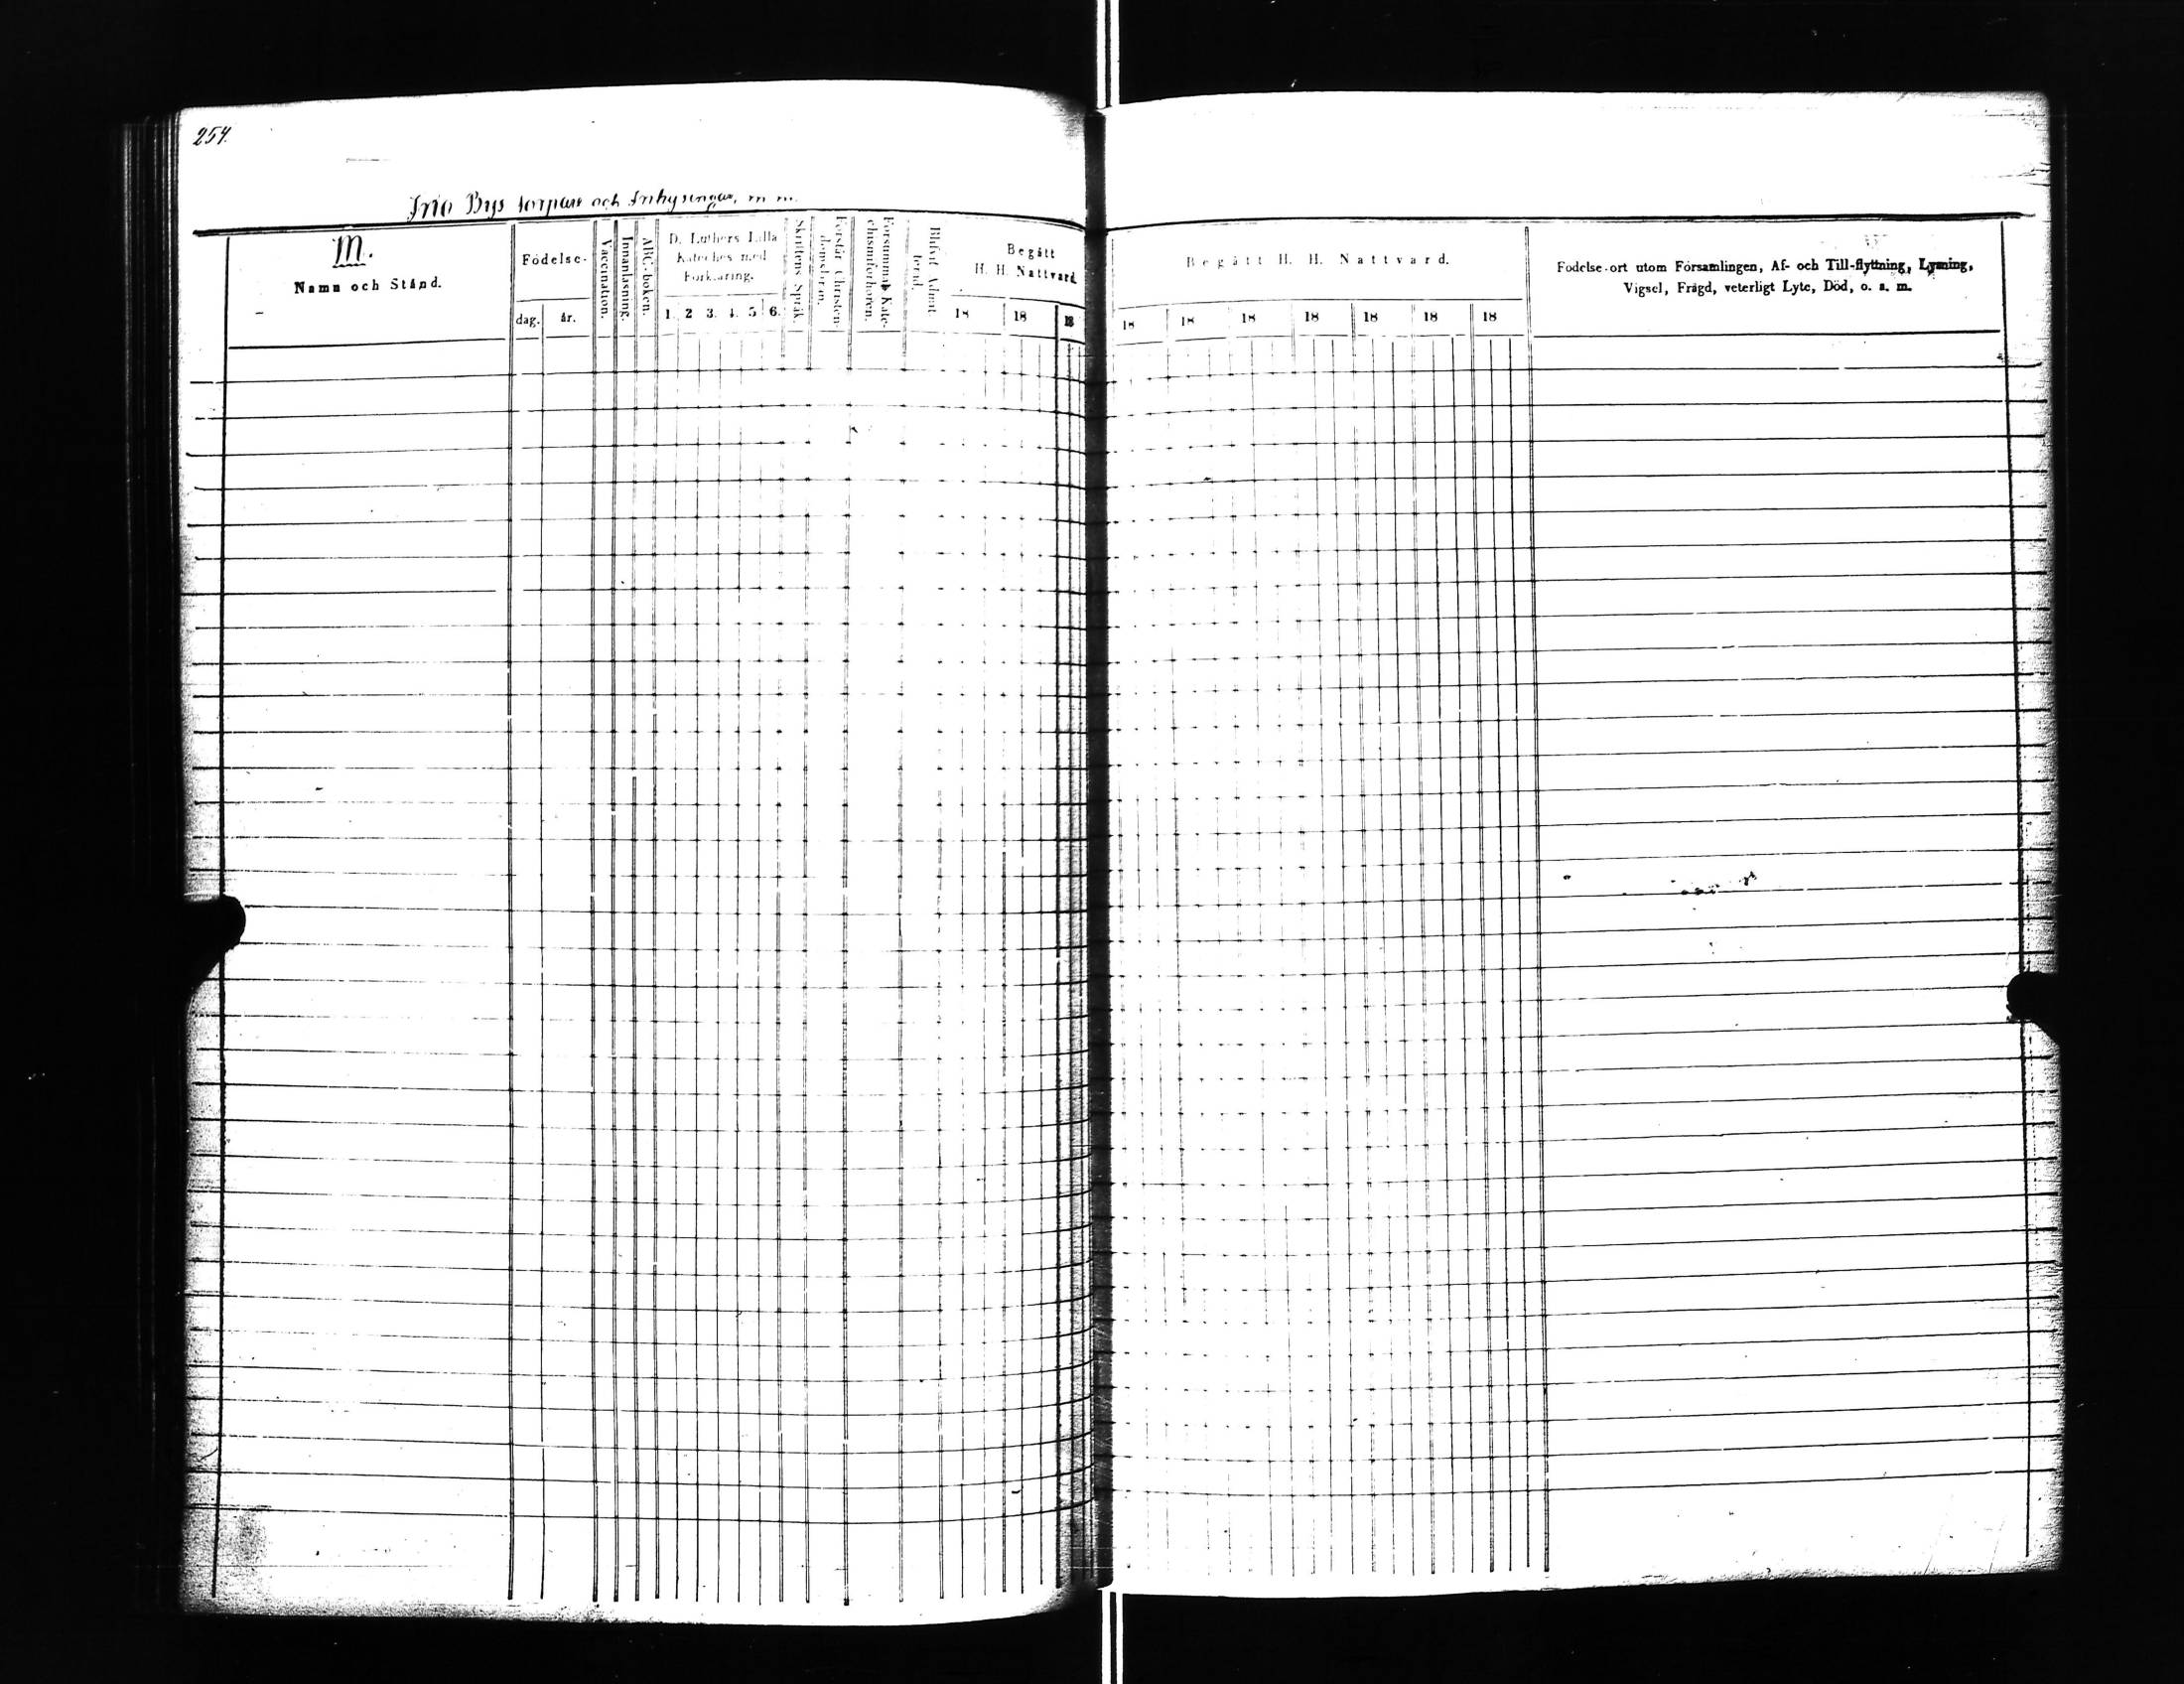 254.
Irio Bys torpare och Inhysingar, m m.
M.
Namn och Stånd.
Födelse-
dag.
år.
Vaccination.
Innanläsning.
ABC-boken.
D. Luthers Lilla
Kateches med
Förklaring.
1. 2 3. 4. 5 6.
Skriftens Språk.
Förstår Christen-
domsläran.
Försummat Kate-
chismiförhören.
Blifvit Admit-
terad.
Begått
H. H. Nattvard
18 18 18
Begått H. H. Nattvard.
18 18 18 18 18 18 18
Födelse-ort utom Församlingen, Af- och Till-flyttning, Lysning,
Vigsel, Frägd, veterligt Lyte, Död, o. s. m.